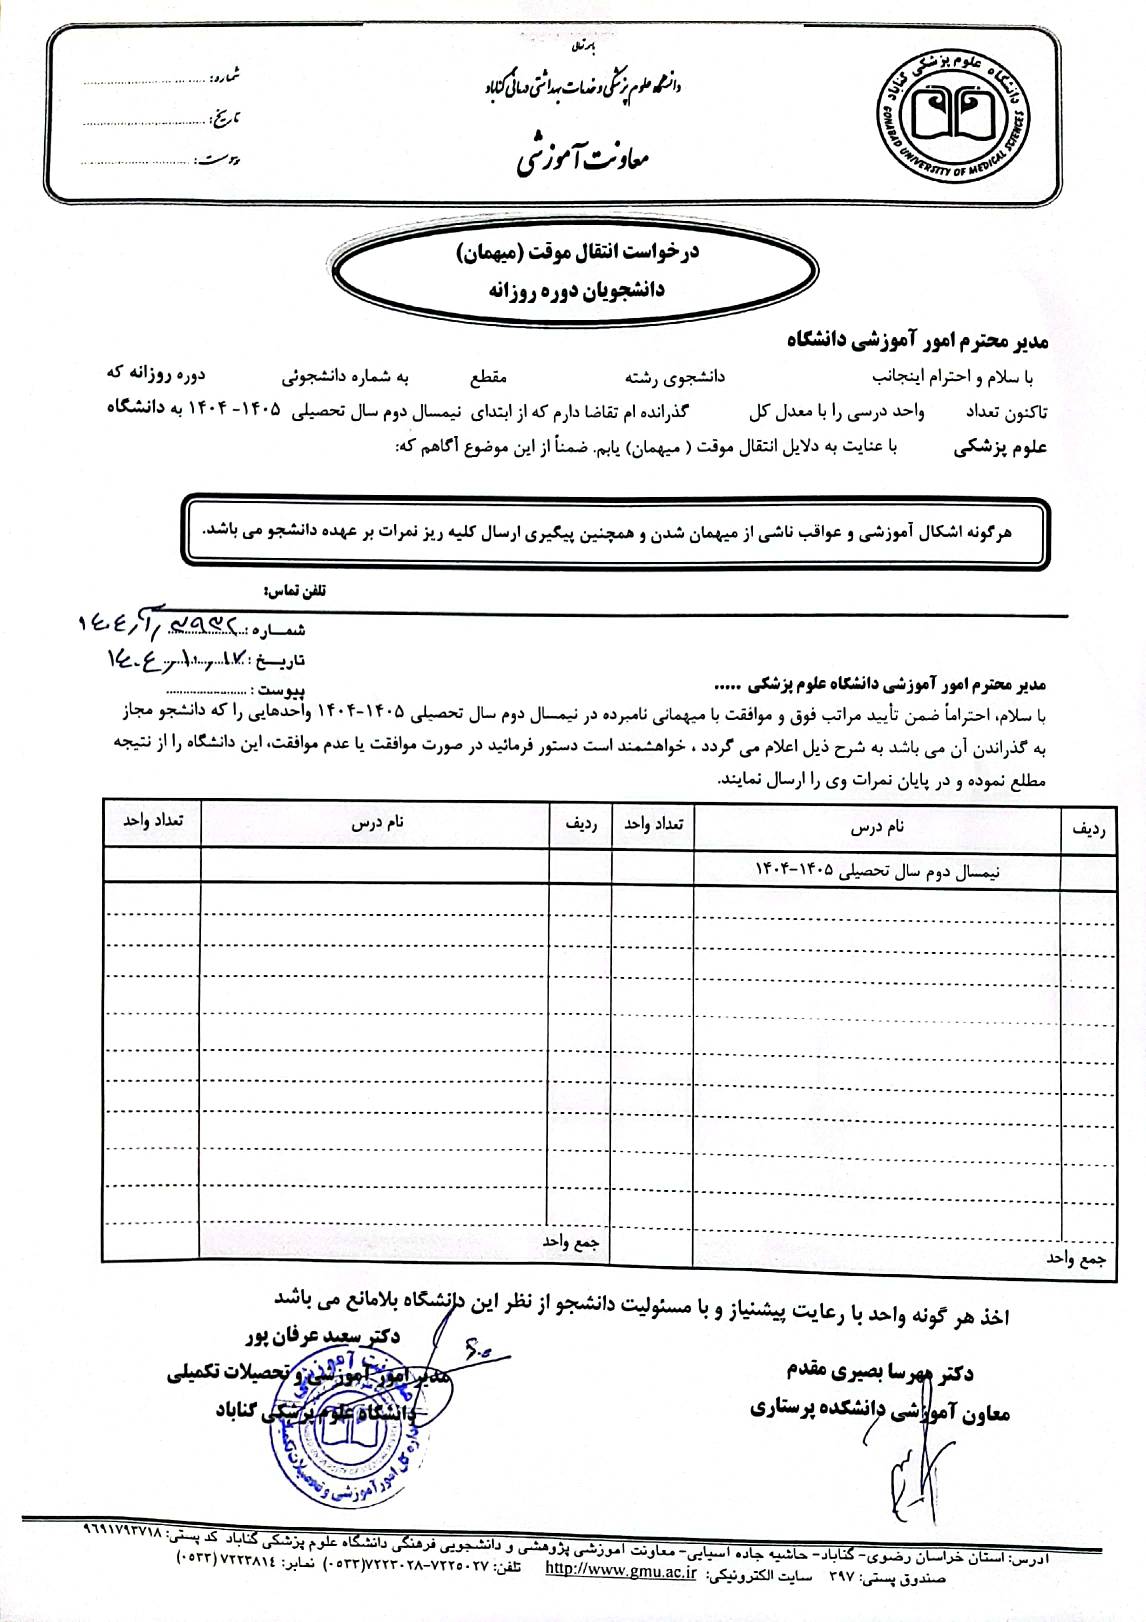 باسمه تعالی
دانشگاه علوم پزشکی و خدمات بهداشتی درمانی گناباد
معاونت آموزشی
شماره: ........................
تاریخ: ........................
پیوست: ........................
دانشگاه علوم پزشکی گناباد
GONABAD UNIVERSITY OF MEDICAL SCIENCES
درخواست انتقال موقت (میهمان)
دانشجویان دوره روزانه
مدیر محترم امور آموزشی دانشگاه
با سلام و احترام اینجانب دانشجوی رشته مقطع به شماره دانشجوئی دوره روزانه که
تاکنون تعداد واحد درسی را با معدل کل گذرانده ام تقاضا دارم که از ابتدای نیمسال دوم سال تحصیلی ۱۴۰۵- ۱۴۰۴ به دانشگاه
علوم پزشکی با عنایت به دلایل انتقال موقت ( میهمان) یابم. ضمناً از این موضوع آگاهم که:
هرگونه اشکال آموزشی و عواقب ناشی از میهمان شدن و همچنین پیگیری ارسال کلیه ریز نمرات بر عهده دانشجو می باشد.
تلفن تماس:
شماره :
تاریخ : ۱۴۰۴/۱۰/۱۷
پیوست : ........................
مدیر محترم امور آموزشی دانشگاه علوم پزشکی .....
با سلام، احتراماً ضمن تأیید مراتب فوق و موافقت با میهمانی نامبرده در نیمسال دوم سال تحصیلی ۱۴۰۵-۱۴۰۴ واحدهایی را که دانشجو مجاز
به گذراندن آن می باشد به شرح ذیل اعلام می گردد ، خواهشمند است دستور فرمائید در صورت موافقت یا عدم موافقت، این دانشگاه را از نتیجه
مطلع نموده و در پایان نمرات وی را ارسال نمایند.
ردیف نام درس تعداد واحد ردیف نام درس تعداد واحد
نیمسال دوم سال تحصیلی ۱۴۰۵-۱۴۰۴
جمع واحد جمع واحد
اخذ هر گونه واحد با رعایت پیشنیاز و با مسئولیت دانشجو از نظر این دانشگاه بلامانع می باشد
دکتر مهرسا بصیری مقدم
معاون آموزشی دانشکده پرستاری
دکتر سعید عرفان پور
مدیر امور آموزشی و تحصیلات تکمیلی
دانشگاه علوم پزشکی گناباد
معاونت آموزشی
اداره کل امور آموزشی و تحصیلات تکمیلی
ادرس: استان خراسان رضوی- گناباد- حاشیه جاده اسیایی- معاونت اموزشی پژوهشی و دانشجویی فرهنگی دانشگاه علوم پزشکی گناباد کد پستی: ۹۶۹۱۷۹۳۷۱۸
صندوق پستی: ۳۹۷ سایت الکترونیکی: http://www.gmu.ac.ir تلفن: ۷۲۲۵۰۲۷-۷۲۲۳۰۲۸(۰۵۳۳) نمابر: ۷۲۲۳۸۱۴ (۰۵۳۳)